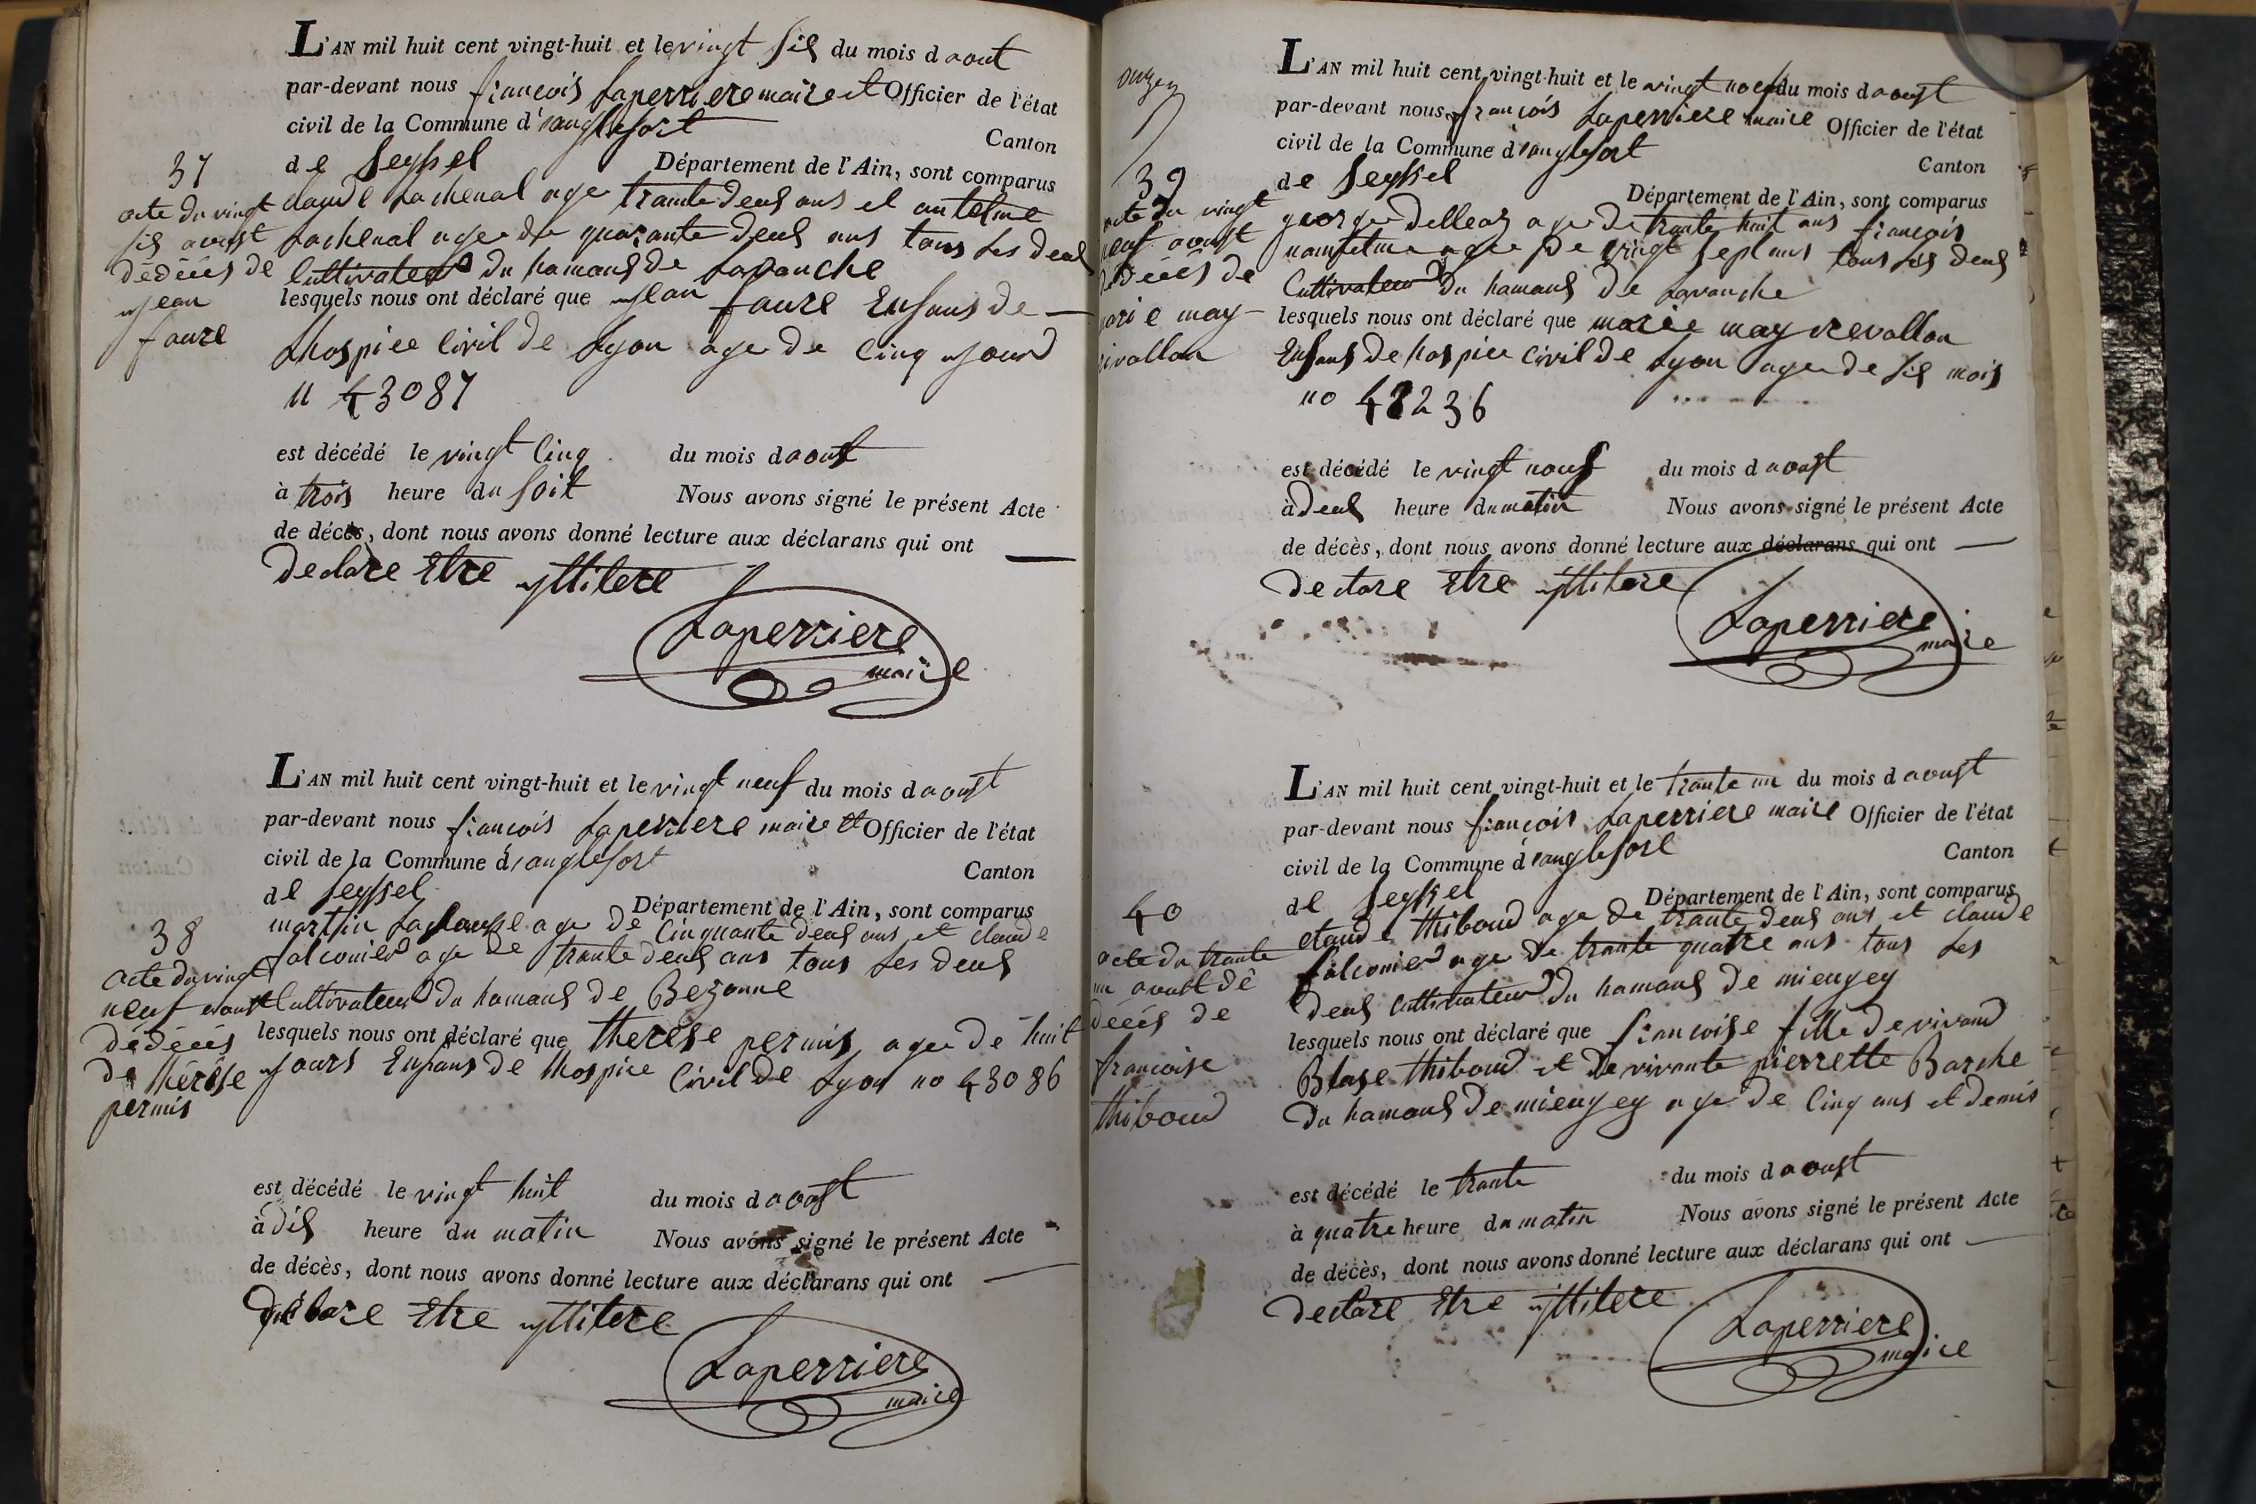 L'AN mil huit cent vingt-huit et le vingt six du mois d aout
par-devant nous francois Laperriere maire et Officier de l'état
civil de la Commune d'anglefort
Canton
de Seyssel Département de l'Ain, sont comparus
37
acte du vingt
six aoust
dédécés de
jean
faure
claude Lachenal age trante deux ans et antelme
Lachenal age de quarante deux ans tous les deux
Cultivateur du hamaux de Lavanche
lesquels nous ont déclaré que jean faure Enfans de
Lhospice Civil de Lyon age de Cinq jours
n 43087
est décédé le vingt Cinq du mois daoust
à trois heure du soir Nous avons signé le présent Acte
de décès, dont nous avons donné lecture aux déclarans qui ont
declare Etre yllitere
Laperriere
maire
L'AN mil huit cent vingt-huit et le vingt neuf du mois d aoust
par-devant nous francois Laperriere maire et Officier de l'état
civil de la Commune d'anglefort
Canton
de Seyssel
Département de l'Ain, sont comparus
38
acte du vingt
neuf aoust
dédécés
de thérése
permis
martin age de Cinquante deux ans et claude
falconier age de trante deux ans tous les deux
Cultivateur du hamaux de Bezonne
lesquels nous ont déclaré que therese permis agee de huit
jours Enfans de lhospice Civil de Lyon no 43086
est décédé le vingt huit du mois d aoust
à dix heure du matin Nous avons signé le présent Acte
de décès, dont nous avons donné lecture aux déclarans qui ont
declare Etre yllitere
Laperriere
maire
onzen
L'AN mil huit cent vingt-huit et le vingt noeuf du mois d aoust
par-devant nous francois Laperriere maire Officier de l'état
civil de la Commune d'anglefort
Canton
de Seyssel
Département de l'Ain, sont comparus
39
acte du vingt
neuf aoust
dédécés de
marie may
rivallon
george delleaz age de trante huit ans francois
age de vingt sept ans tous les deux
Cultivateur du hamaux de Lavanche
lesquels nous ont déclaré que marie may revallon
Enfans de hospice Civil de Lyon agee de six mois
no 48236
est décédé le vingt nouf du mois d aoust
à deux heure du matin Nous avons signé le présent Acte
de décès, dont nous avons donné lecture aux déclarans qui ont
declare Etre yllitere
Laperriere
maire
L'AN mil huit cent vingt-huit et le trante un du mois d aoust
par-devant nous francois Laperriere maire Officier de l'état
civil de la Commune d'anglefort
Canton
de Seyssel
Département de l'Ain, sont comparus
40
acte du trante
un aoust dé
decés de
francoise
thiboud
claude thiboud age de trante deux ans et claude
falconier age de trante quatre ans tous les
deux Cultivateur du hamaux de miengey
lesquels nous ont déclaré que francoise fille de vivand
Blase thiboud et de vivante pierrette Barche
du hamaux de miengey age de Cinq ans et demis
est décédé le trante du mois d aoust
à quatre heure du matin Nous avons signé le présent Acte
de décès, dont nous avons donné lecture aux déclarans qui ont
declare Etre yllitere
Laperriere
maire